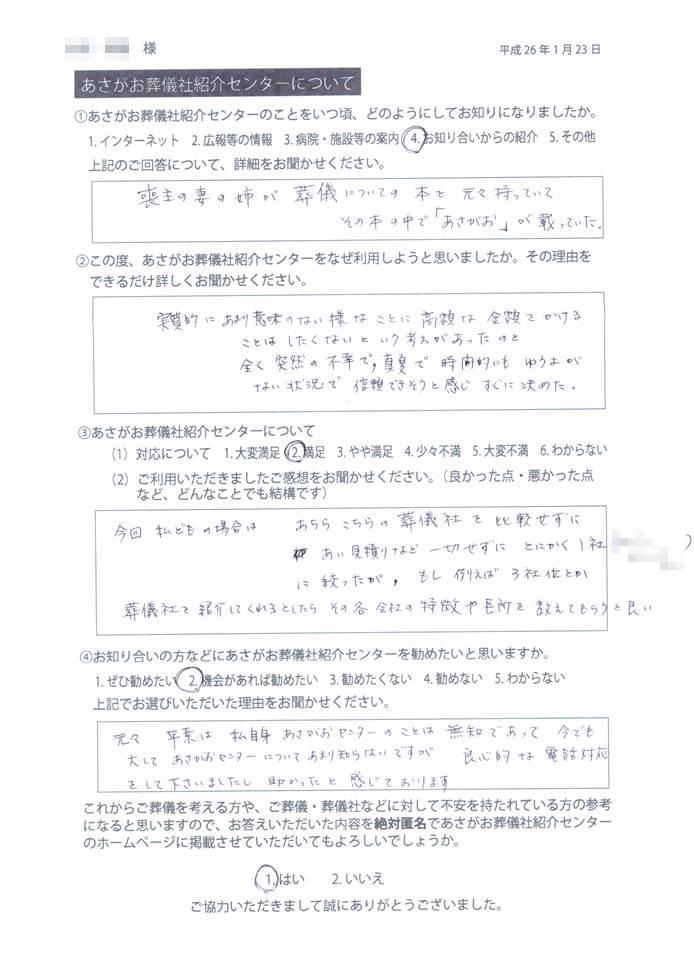 様
平成26年1月23日
あさがお葬儀社紹介センターについて
①あさがお葬儀社紹介センターのことをいつ頃、どのようにしてお知りになりましたか。
1. インターネット 2. 広報等の情報 3. 病院・施設等の案内 4. お知り合いからの紹介 5. その他
上記のご回答について、詳細をお聞かせください。
喪主の妻の姉が 葬儀についての 本を 元々持っていて
その本の中で「あさがお」が 載っていた。
②この度、あさがお葬儀社紹介センターをなぜ利用しようと思いましたか。その理由を
できるだけ詳しくお聞かせください。
実質的に あまり意味のない様なことに 高額な 金額をかける
ことは したくないと いう考えがあったのと
全く 突然の不幸で、真夏で 時間的にも ゆうよが
ない状況で 信頼できそうと感じ すぐに決めた。
③あさがお葬儀社紹介センターについて
(1) 対応について 1. 大変満足 2. 満足 3. やや満足 4. 少々不満 5. 大変不満 6. わからない
(2) ご利用いただきましたご感想をお聞かせください。(良かった点・悪かった点
など、どんなことでも結構です)
今回 私どもの場合は あちら こちらの 葬儀社を 比較せずに
あい見積りなど 一切せずに とにかく 1社 )
に 絞ったが、もし 例えば 3社位とか
葬儀社を紹介してくれるとしたら その各会社の特徴や長所を 教えてもらうと良い
④お知り合いの方などにあさがお葬儀社紹介センターを勧めたいと思いますか。
1. ぜひ勧めたい 2. 機会があれば勧めたい 3. 勧めたくない 4. 勧めない 5. わからない
上記でお選びいただいた理由をお聞かせください。
元々 私自身 あさがおセンターのことは 無知であって 今でも
大して あさがおセンターについてあまり知らないですが 良心的な 電話対応
をして下さいましたし 助かったと 感じております
これからご葬儀を考える方や、ご葬儀・葬儀社などに対して不安を持たれている方の参考
になると思いますので、お答えいただいた内容を絶対匿名であさがお葬儀社紹介センター
のホームページに掲載させていただいてもよろしいでしょうか。
1. はい 2. いいえ
ご協力いただきまして誠にありがとうございました。